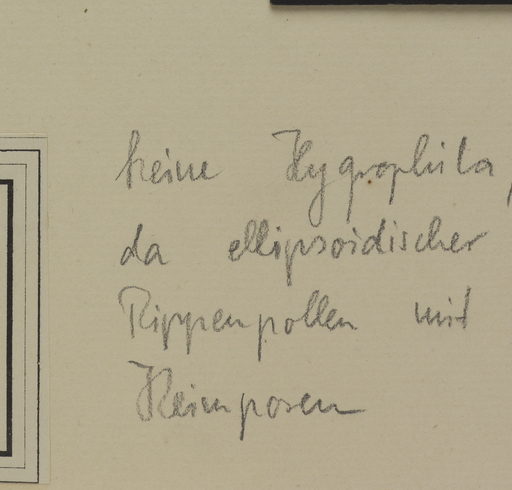 keine Hygrophila,
da ellipsoidischer
Rippenpollen mit
Keimporen